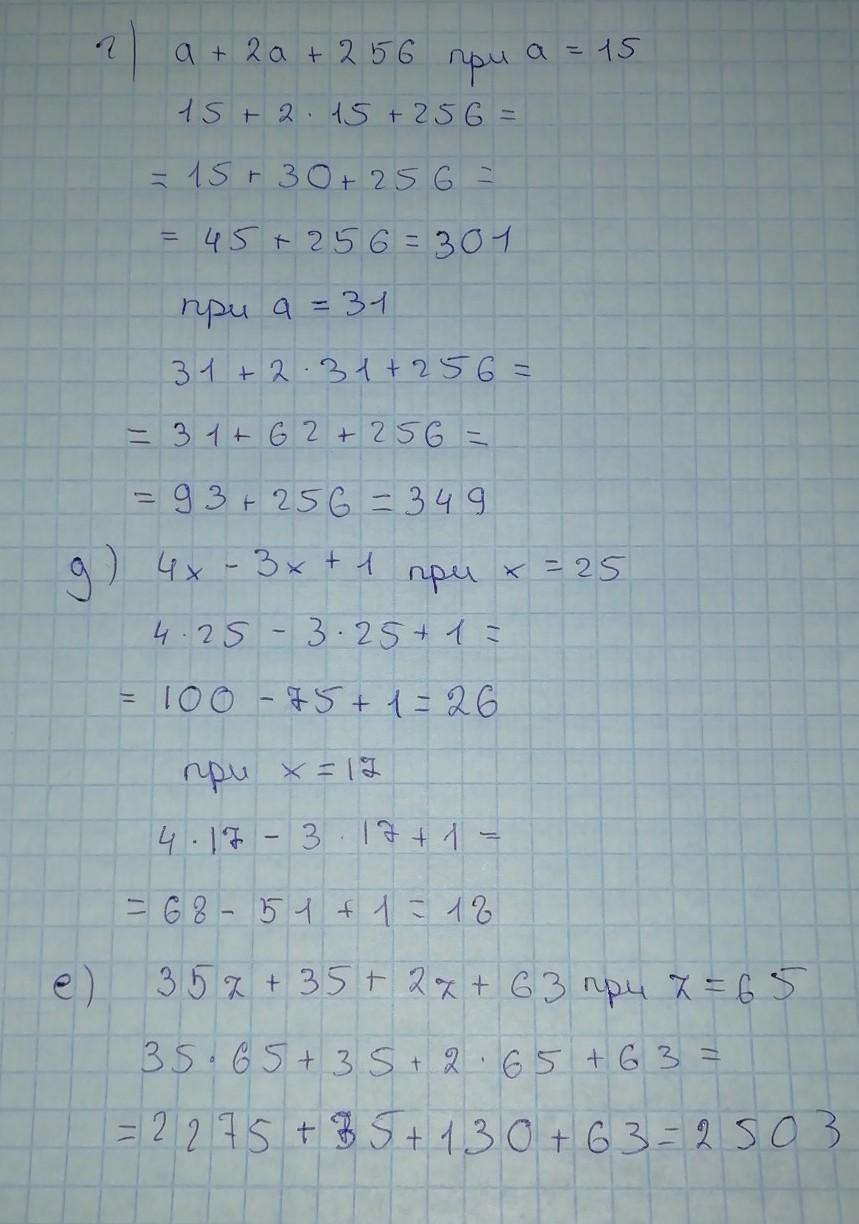 г) a + 2a + 256 при a = 15
15 + 2 · 15 + 256 =
= 15 + 30 + 256 =
= 45 + 256 = 301
при a = 31
31 + 2 · 31 + 256 =
= 31 + 62 + 256 =
= 93 + 256 = 349
д) 4x - 3x + 1 при x = 25
4 · 25 - 3 · 25 + 1 =
= 100 - 75 + 1 = 26
при x = 17
4 · 17 - 3 · 17 + 1 =
= 68 - 51 + 1 = 18
е) 35z + 35 + 2z + 63 при z = 65
35 · 65 + 35 + 2 · 65 + 63 =
= 2275 + 35 + 130 + 63 = 2503